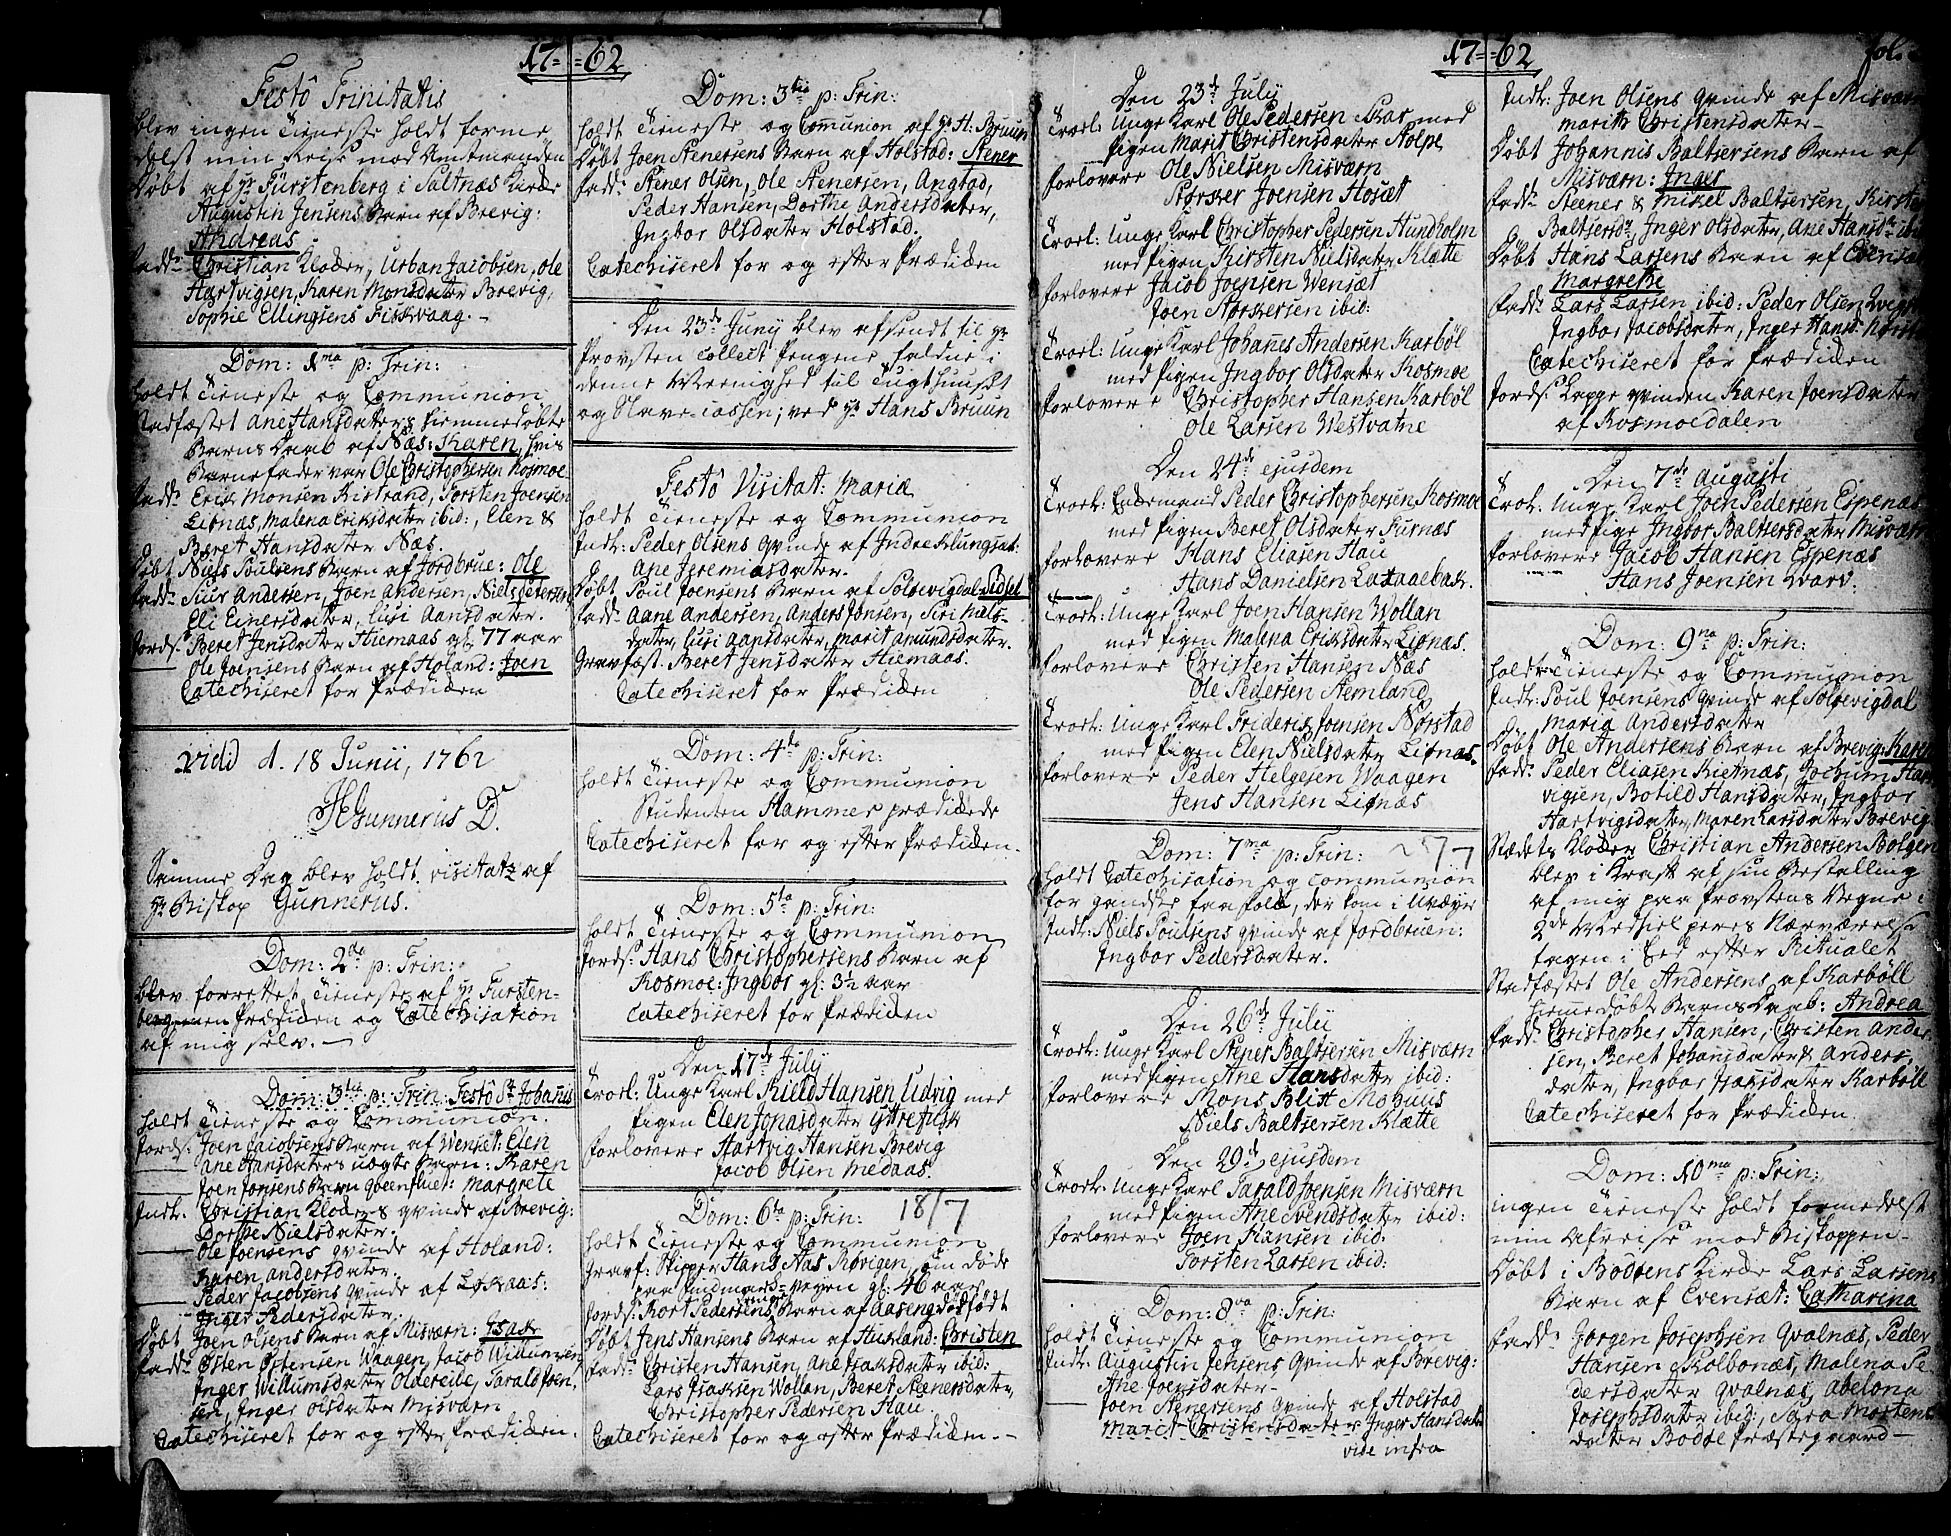 17 = = 62
Festô Trinitatis
blev ingen Tieneste holdt forme
delst min Reise med Amtmanden
Døbt af hr Fürstenberg i Saltnæs Kirke
Augustin Jensens Barn af Brevig:
Andreas
Fadd: Christian Kloder, Urban Jacobsen, Ole
Hartvigsen, Karen Monsdater Brevig,
Sophie Ellingsens Fiskvaag. -
Dom: 1ma p: Trin:
holdt Tieneste og Communion
Stadfæstet Ane Hansdaters hiemmedøbte
Barns Daab af Næs: Karen, hvis
Barnefader var Ole Christophersen Kosmoe
Fadd: Erik Monsen Kistrand, Torsten Joensen
Lignæs, Malena Eriksdater ibid:, Elen &
Beret Hansdater Næs.
Døbt Niels Poulsens Barn af Jordbrue: Ole
Fadd: Siur Andersen, Joen Andersen, Niels Petersen
Eli Einersdater, Lusi Aansdater.
Jords: Beret Jensdater Hiemaas gl: 77 aar
Ole Joensens Barn af Holand: Joen
Catechiseret for Prædiken
Vidi d. 18 Junii, 1762
JHGunnerus D.
Samme Dag blev holdt visitatz af
hr Biskop Gunnerus.
Dom: 2da p: Trin:
blev forrettet Tieneste af hr Fursten-
berg men Prædiken og Catechisation
af mig selv. -
Dom: 3tia p: Trin. Festô St Johanis
holdt Tieneste og Communion.
Jords: Joen Jacobsens Barn af Wenset: Elen
Ane Hansdaters uægte Barn: Karen
Joen Jonsens Barn Qbeenfluet: Margrete
Indt: Christian Kloders qvinde af Brevig:
Dorthe Nielsdater.
Ole Joensens qvinde af Holand:
Karen Andersdater.
Peder Jacobsens qvinde af Løkaas:
Inger Pedersdater
Døbt Joen Olsens Barn af Misværn: Isak
Fadd: Østen Østensen Waagen, Jacob Willumsen
Inger Willumsdater Oldereile, Tarald Joen,
sen, Inger Olsdater Misværn
Catechiseret for og efter Prædiken.
Dom: 3tia p: Trin:
holdt Tieneste og Communion af hr H: Bruun
Døbt Joen Stenersens Barn af Holstad: Stener
Fadd: Stener Olsen, Ole Stenersen, Angstad,
Peder Hansen, Dorthe Andersdater,
Ingbor Olsdater Holstad.
Catechiseret for og efter Prædiken
Den 23de Junij blev afsendt til hr
Provsten Collect Pengene faldne i
denne Meenighed til Tugthuuset
og Slave-cassen; ved hr Hans Bruun
Festô Visitat: Mariæ
holdt Tieneste og Communion
Indt: Peder Olsens qvinde af Indre Klungset:
Ane Jeremiasdater.
Døbt Poul Joensens Barn af Solsevigdal: Sidsel
Fadd: Aane Andersen, Anders Jonsen, Siri Niels-
dater, Lusi Aansdater, Marit Amundsdater.
Gravfæst: Beret Jensdater Hiemaas.
Catechiseret for Prædiken
Dom: 4ta p: Trin:
holdt Tieneste og Communion
Studenten Hammer prædikede
Catechiseret for og efter Prædiken.
Dom: 5ta p: Trin:
holdt Tieneste og Communion
Jords: Hans Christophersens Barn af
Kosmoe: Ingbor gl: 3½ aar
Catechiseret for Prædiken
Den 17de July
Troel: Unge Karl Kield Hansen Udvig med
Pigen Elen Jonasdater Yttrefusk
Forlovere Hartvig Hansen Brevig
Jacob Olsen Medaas.
Dom: 6ta p: Trin: 18/7
holdt Tieneste og Communion
Gravf: Skipper Hans Aas Røvigen, som døde
paa Findmarks-veyen gl: 46 aar
Jords: Kort Pedersens Barn af Aaseng dødfødt
Døbt Jens Hansens Barn af Husland: Christen
Fadd: Christen Hansen, Ane Isaksdater ibid:
Lars Isaksen Wollan, Beret Stenersdater,
Christopher Pedersen Hau.
Catechiseret for og efter Prædiken. -
17 = = 62
Den 23de July
Troel: Unge Karl Ole Pedersen Skar med
Pigen Marit Christensdater Stolpe
Forlovere Ole Nielsen Misværn
Størker Joensen Hoset
Troel: Unge Karl Christopher Pedersen Hundholm
med Pigen Kirsten Nielsdater Klætte
Forlovere Jacob Joensen Wenset
Joen Størkersen ibid:
Troel: Unge Karl Johanes Andersen Karbøl
med Pigen Ingbor Olsdater Kosmoe
Forlovere Christopher Hansen Karbøl
Ole Larsen Westvatne
Den 24de ejusdem
Troel: Enkemand Peder Christophersen Kosmoe
med Pigen Beret Olsdater Furnæs
Forlovere Hans Eliasen Hau
Hans Danielsen Laxaaebak.
Troel: Unge Karl Joen Hansen Wollan
med Pigen Malena Eriksdater Lignæs.
Forlovere Christen Hansen Næs
Ole Pedersen Nemland
Troel: Unge Karl Friderik Joensen Nørstad
med Pigen Elen Nielsdater Lignæs.
Forlovere Peder Helgesen Waagen
Jens Hansen Lignæs
Dom: 7ma p: Trin: 25/7
holdt Catechisation og Communion
for gandske faa Folk, der kom i Uveyr
Indt: Niels Poulsens qvinde af Jordbruen:
Ingbor Pedersdater.
Den 26de Julii
Troel: Unge Karl Stener Baltsersen Misværn
med Pigen Ane Hansdater ibid:
Forlovere Mons Blix Mohuus
Niels Baltsersen Klætte
Den 29de ejusdem
Troel: Unge Karl Tarald Joensen Misværn
med Pigen Ane Svendsdater ibid:
Forlovere Joen Hansen ibid:
Torsten Larsen ibid:
Dom: 8va p: Trin:
holdt Tieneste og Communion
Indt: Augustin Jensens qvinde af Brevig:
Ane Joensdater -
Joen Stenersens qvinde af Holstad
Marit Christensdater Inger Hansdater
vide infra
fol:
Indt: Joen Olsens qvinde af Misværn
Marith Christensdater -
Døbt Johannis Baltsersens Barn af
Misværn: Inger
Fadd: Steener & Mikel Baltsersen, Kirsten
Baltsersdr, Inger Olsdater, Ane Hansdr ibid
Døbt Hans Larsens Barn af Evenset
Margrethe
Fadd: Lars Larsen ibid: Peder Olsen
Ingbor Jacobsdater, Inger Hansd:
Catechiseret for Prædiken
Jords: Lappe qvinden Karen Joensdater
af Kosmoedalen
Den 7de Augusti
Troel: Unge Karl Joen Pedersen Espenæs
med Pige Ingbor Baltsersdater Misværn
Forlovere Jacob Hansen Espenæs
Hans Joensen Kvarv.
Dom: 9na p: Trin:
holdt Tieneste og Communion
Indt: Poul Joensens qvinde af Solsevigdal
Maria Andersdater
Døbt Ole Andersens Barn af Brevig: Karen
Fadd: Peder Eliasen Kietnæs, Jochum Hart
vigsen, Botild Hansdater, Ingbor
Hartvigsdater, Maren Larsdater Brevig.
Stædets Kloder Christian Andersen Bolgen
blev i Kraft af sin Bestalling
af mig paa Provstens Vegne i
2de Medhielperes Nærværelse
tagen i Eed efter Ritualet
Stadfæstet Ole Andersens af Karbøll
hiemedøbt Barns Daab: Andrea
Fadd: Christopher Hansen, Christen Ander
sen, Beret Johansdater & Anders,
dater, Ingbor Isaksdater Karbøll
Catechiseret for Prædiken.
Dom: 10ma p: Trin:
ingen Tieneste holdt formedelst
min Afreise med Biskoppen -
Døbt i Bodøens Kirke Lars Larsens
Barn af Evensæt: Catharina
Fadd: Jørgen Josephsen Qvalnæs, Peder
Hansen Skolbonæs, Malena Pe-
dersdater Qvalnæs, Abelona
Josephsdater ibid:, Sara Mortens
dater Bodøe Præstegaard -